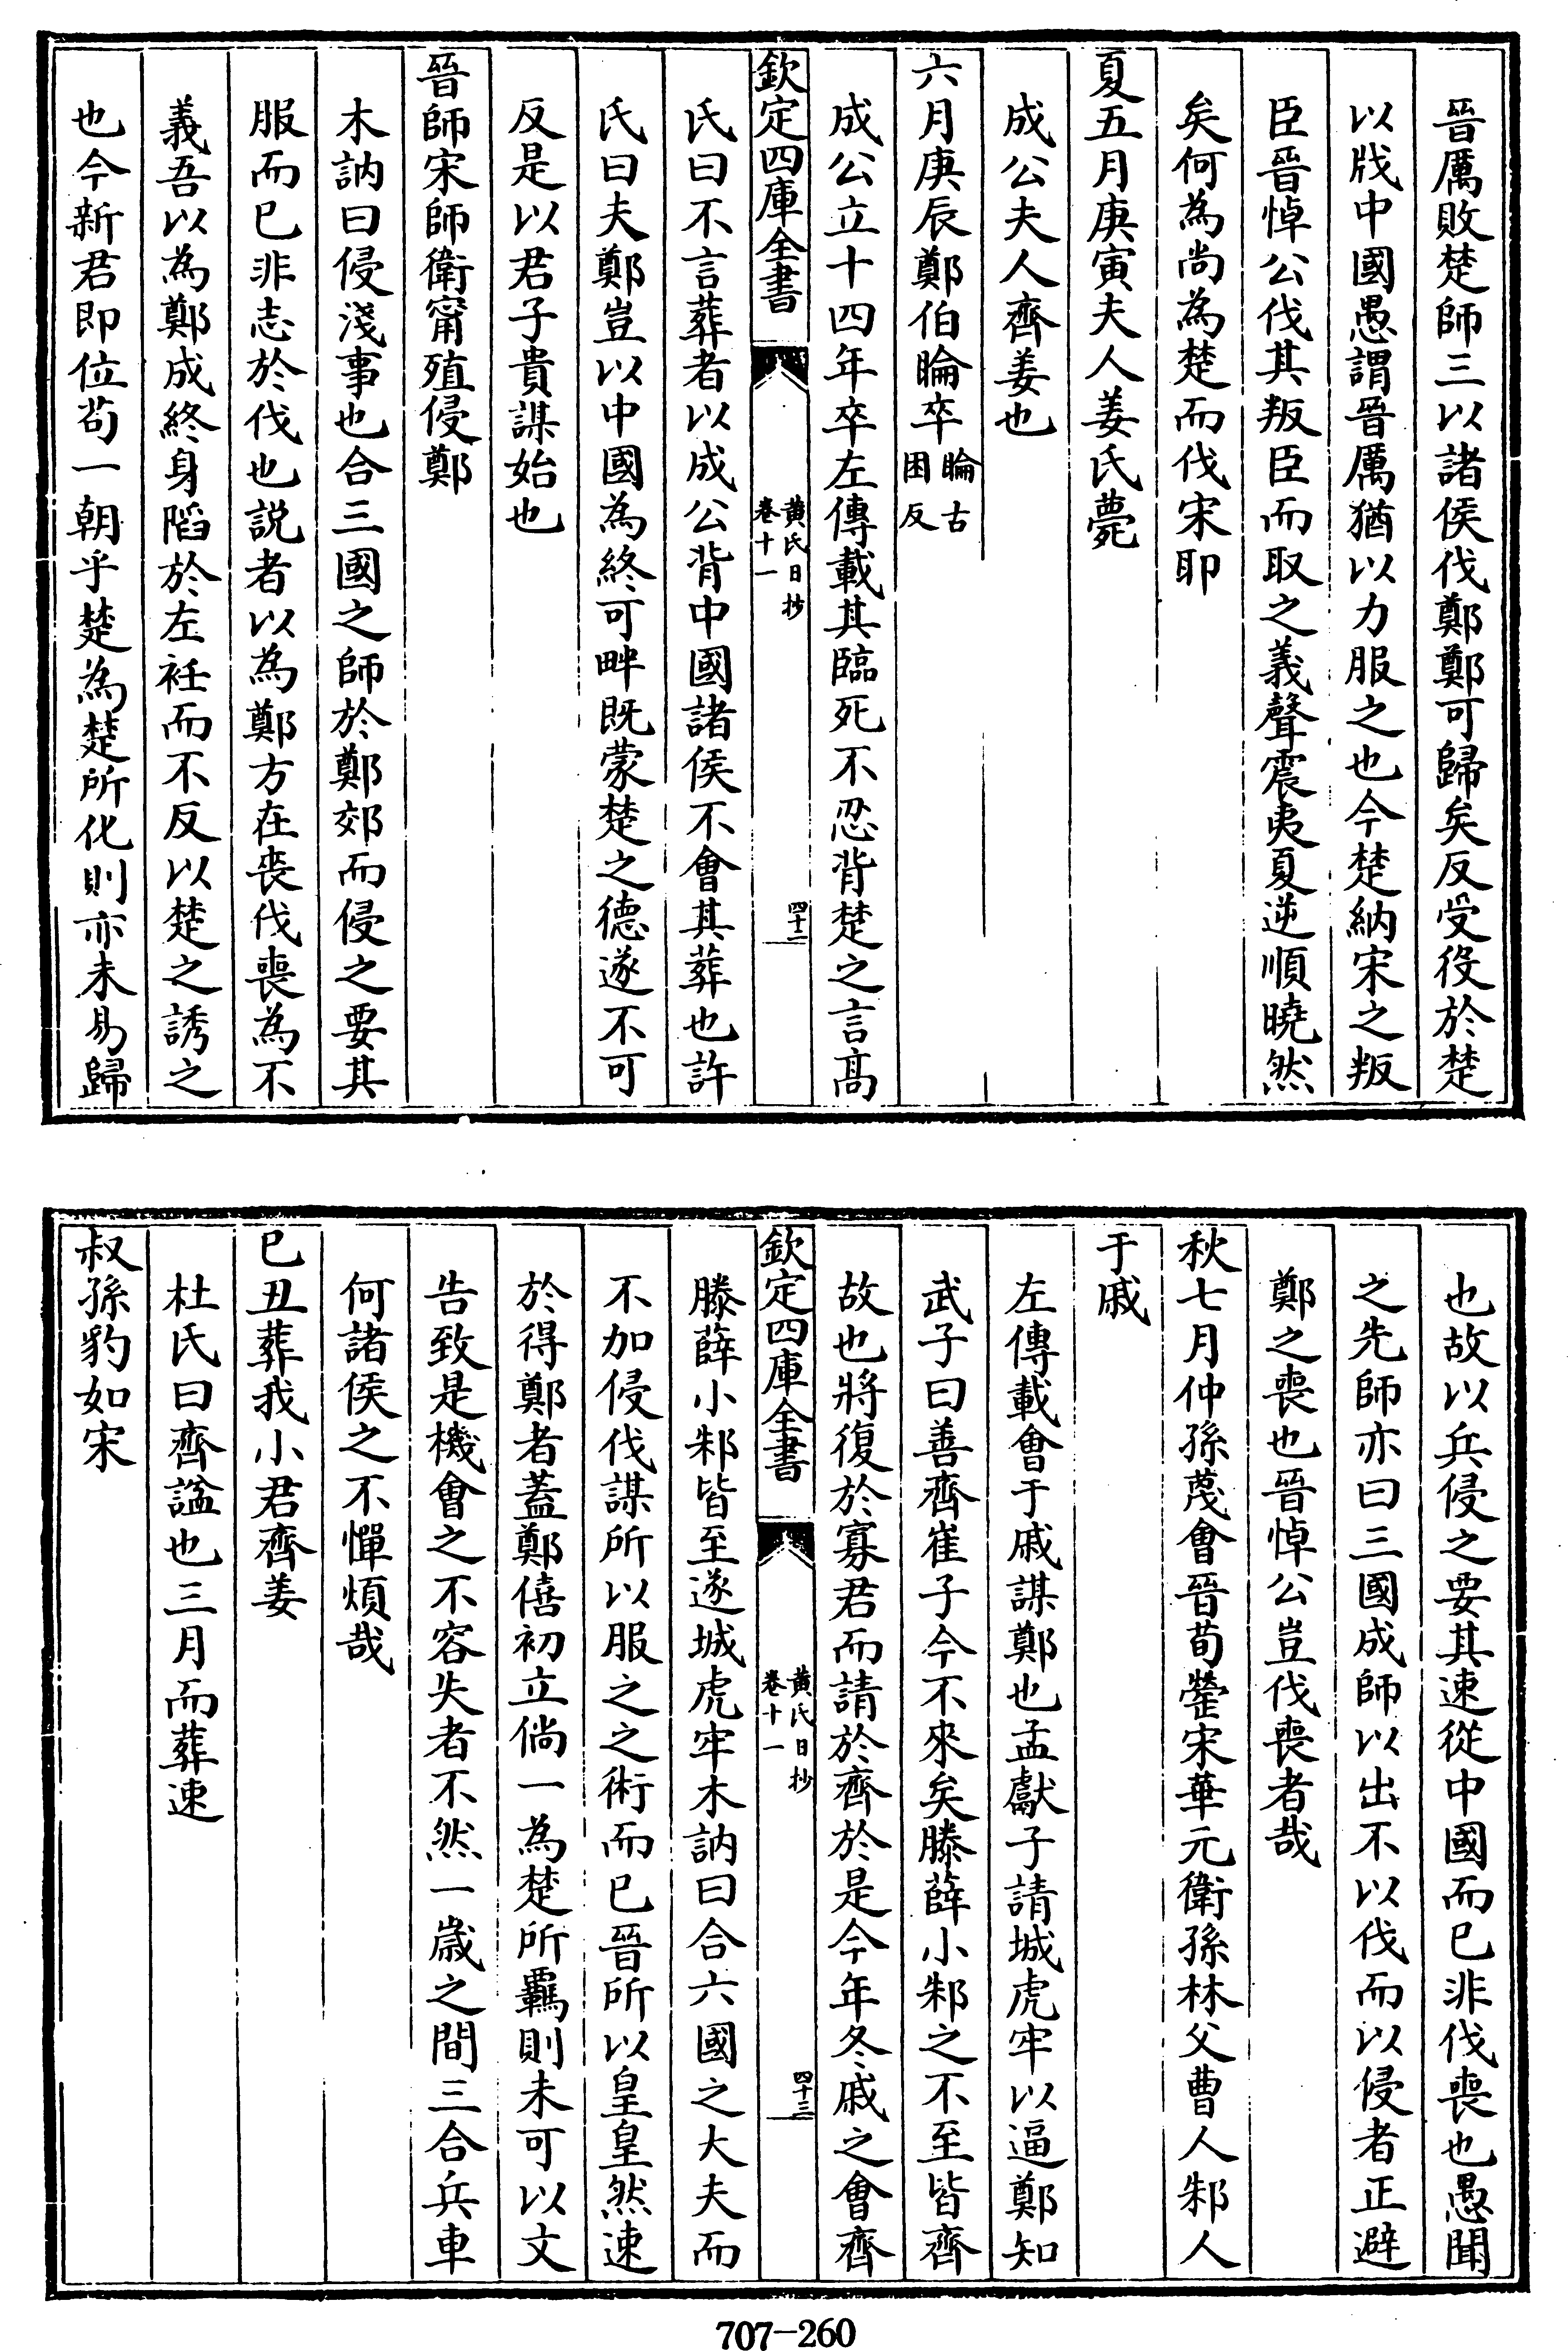 晉厲敗楚師三以諸侯伐鄭鄭可歸矣反受役於楚
以戕中國愚謂晉厲猶以力服之也今楚納宋之叛
臣晉悼公伐其叛臣而取之義聲震夷夏逆順曉然
矣何為尚為楚而伐宋耶
夏五月庚寅夫人姜氏薨
成公夫人齊姜也
六月庚辰鄭伯睔卒睔古困反
成公立十四年卒左傳載其臨死不忍背楚之言高
欽定四庫全書
黄氏日抄
卷十一
四十二
氏曰不言葬者以成公背中國諸侯不會其葬也許
氏曰夫鄭豈以中國為終可畔既蒙楚之德遂不可
反是以君子貴謀始也
晉師宋師衛甯殖侵鄭
木訥曰侵淺事也合三國之師於鄭郊而侵之要其
服而已非志於伐也説者以為鄭方在喪伐喪為不
義吾以為鄭成終身陷於左衽而不反以楚之誘之
也今新君即位苟一朝乎楚為楚所化則亦未易歸
也故以兵侵之要其速從中國而已非伐喪也愚聞
之先師亦曰三國成師以出不以伐而以侵者正避
鄭之喪也晉悼公豈伐喪者哉
秋七月仲孫蔑會晉荀罃宋華元衛孫林父曹人邾人
于戚
左傳載會于戚謀鄭也孟獻子請城虎牢以逼鄭知
武子曰善齊崔子今不來矣滕薛小邾之不至皆齊
故也將復於寡君而請於齊於是今年冬戚之會齊
欽定四庫全書
黄氏日抄
卷十一
四十三
滕薛小邾皆至遂城虎牢木訥曰合六國之大夫而
不加侵伐謀所以服之之術而已晉所以皇皇然速
於得鄭者蓋鄭僖初立倘一為楚所羈則未可以文
告致是機會之不容失者不然一歲之間三合兵車
何諸侯之不憚煩哉
已丑葬我小君齊姜
杜氏曰齊諡也三月而葬速
叔孫豹如宋
707-260